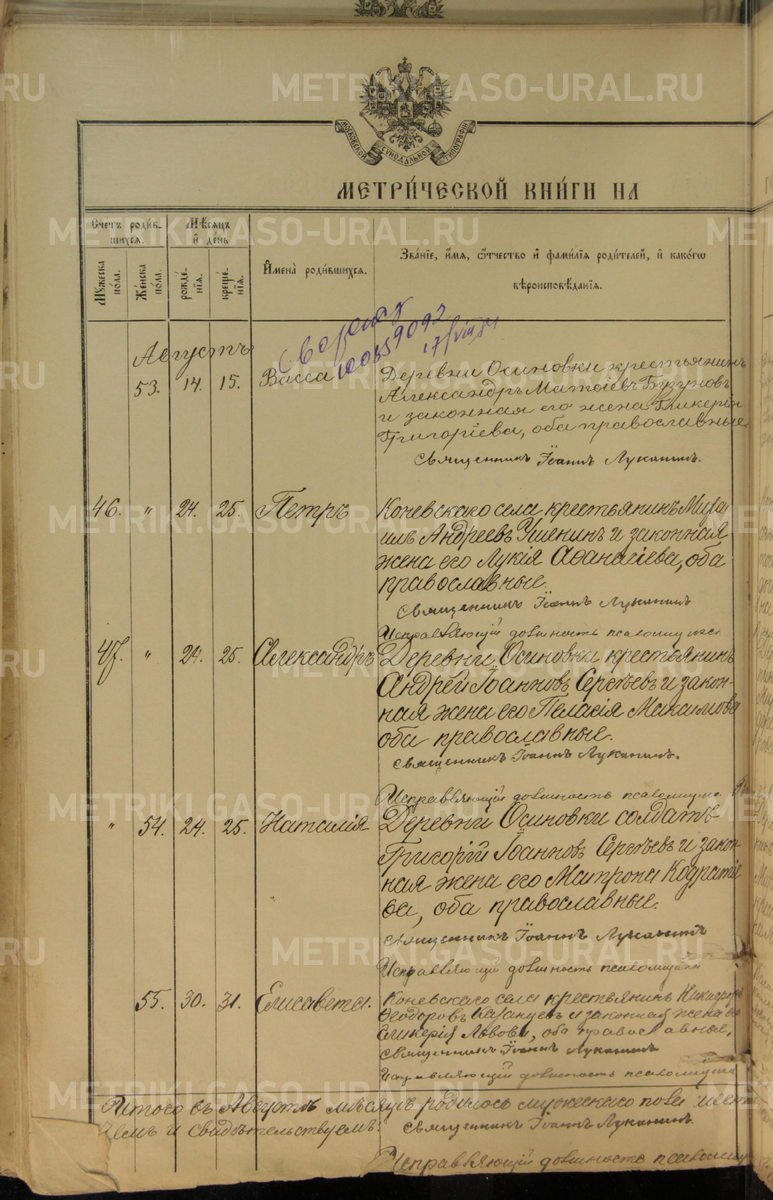 METRIKI.GASO-URAL.RU
МОСКОВСКОЙ СУНОДАЛЬНОЙ ТИПОГРАФІИ
МЕТРИ́ЧЕСКОЙ КНИ́ГИ НА
Счетъ родив-
шихся.
Мѣсяцъ
и день
Имена родившихся.
Званіе, имя, отчество и фамилія родителей, и какого
вѣроисповѣданія.
Мужеска пола.
Женска пола.
рожде́нія.
креще́нія.
Августъ
53. 14. 15. Васса
Деревни Осиновки крестьянинъ
Александръ Матѳіевъ
и законная его жена Гликерія
Григоріева, оба православные
Священникъ Іоаннъ Луканинъ.
46. " 24. 25. Петръ
Коневскаго села крестьянинъ Миха
илъ Андреевъ и законная
жена его Лукія Аѳанасіева, оба
православные.
Священникъ Іоаннъ Луканинъ
Исправляющій должность псаломщика
47. " 24. 25. Александръ
Деревни Осиновки крестьянинъ
Андрей Іоанновъ Сергѣевъ и закон-
ная жена его Пелагія Максимова
оба православные.
Священникъ Іоаннъ Луканинъ.
Исправляющій должность псаломщика
" 54. 24. 25. Наталія
Деревни Осиновки солдатъ
Григорій Іоанновъ Сергѣевъ и закон
ная жена его Матрона Кодратіе
ва, оба православные.
Священникъ Іоаннъ Луканинъ
Исправляющій должность псаломщика
55. 30. 31. Елисавета.
Коневскаго села крестьянинъ Никифоръ
Ѳеодоровъ Казанцевъ и законная жена его
Гликерія Львова, оба православные,
Священникъ Іоаннъ Луканинъ
Исправляющій должность псаломщика
Итого въ Августѣ мѣсяцѣ родилось мужескаго пола
чемъ и свидѣтельствуемъ: Священникъ Іоаннъ Луканинъ.
Исправляющій должность псаломщ